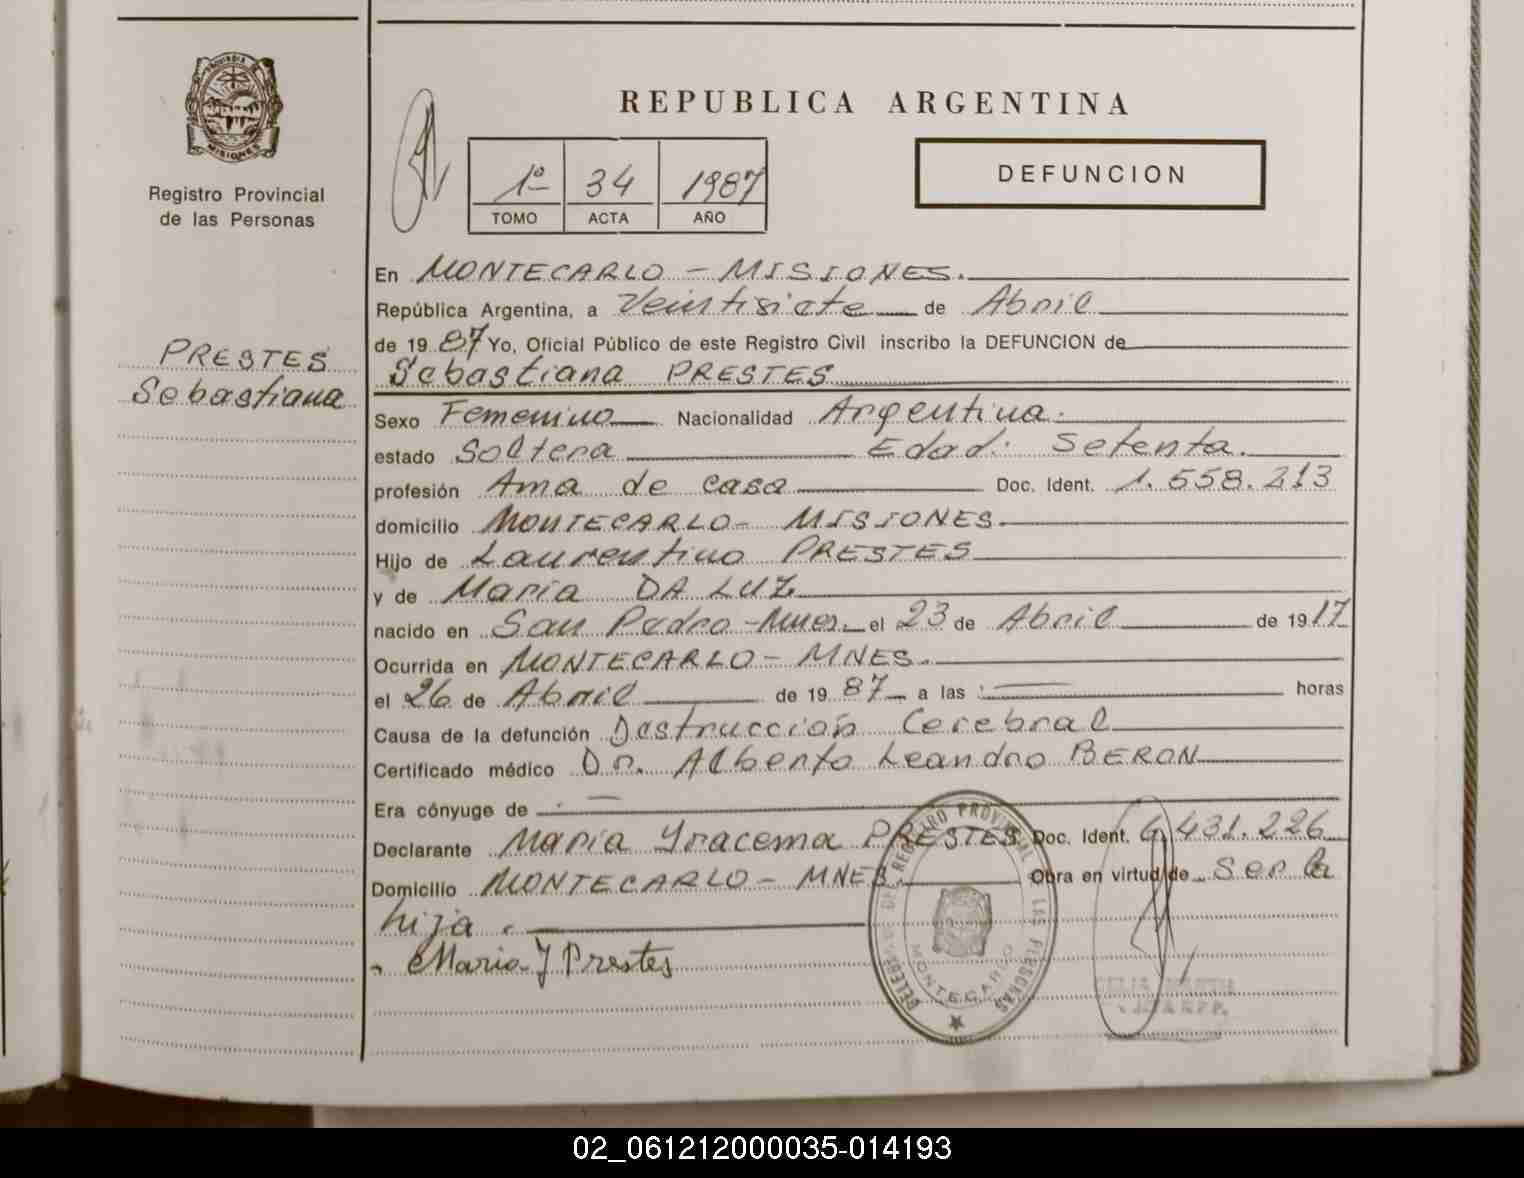 REPUBLICA ARGENTINA
PROVINCIA DE
MISIONES
Registro Provincial
de las Personas
1º 34 1987
TOMO ACTA AÑO
DEFUNCION
PRESTES
Sebastiana
En MONTECARLO - MISIONES.
República Argentina, a Veintisiete de Abril
de 1987 Yo, Oficial Público de este Registro Civil inscribo la DEFUNCION de
Sebastiana PRESTES
Sexo Femenino Nacionalidad Argentina.
estado Soltera Edad: Setenta.
profesión Ama de casa Doc. Ident. 1.558.213
domicilio MONTECARLO - MISIONES
Hijo de Laurentino PRESTES
y de María DA LUZ
nacido en San Pedro - Mnes. el 23 de Abril de 1917
Ocurrida en MONTECARLO - MNES.
el 26 de Abril de 1987 a las — horas
Causa de la defunción Destrucción Cerebral
Certificado médico Dr. Alberto Leandro BERON
Era cónyuge de —
Declarante María Yracema PRESTES Doc. Ident. 6.431.226
Domicilio MONTECARLO - MNES. Obra en virtud de Ser la
hija.
Maria Y Prestes
REGISTRO PROVINCIAL LAS PERSONAS
MONTECARLO
02_061212000035-014193